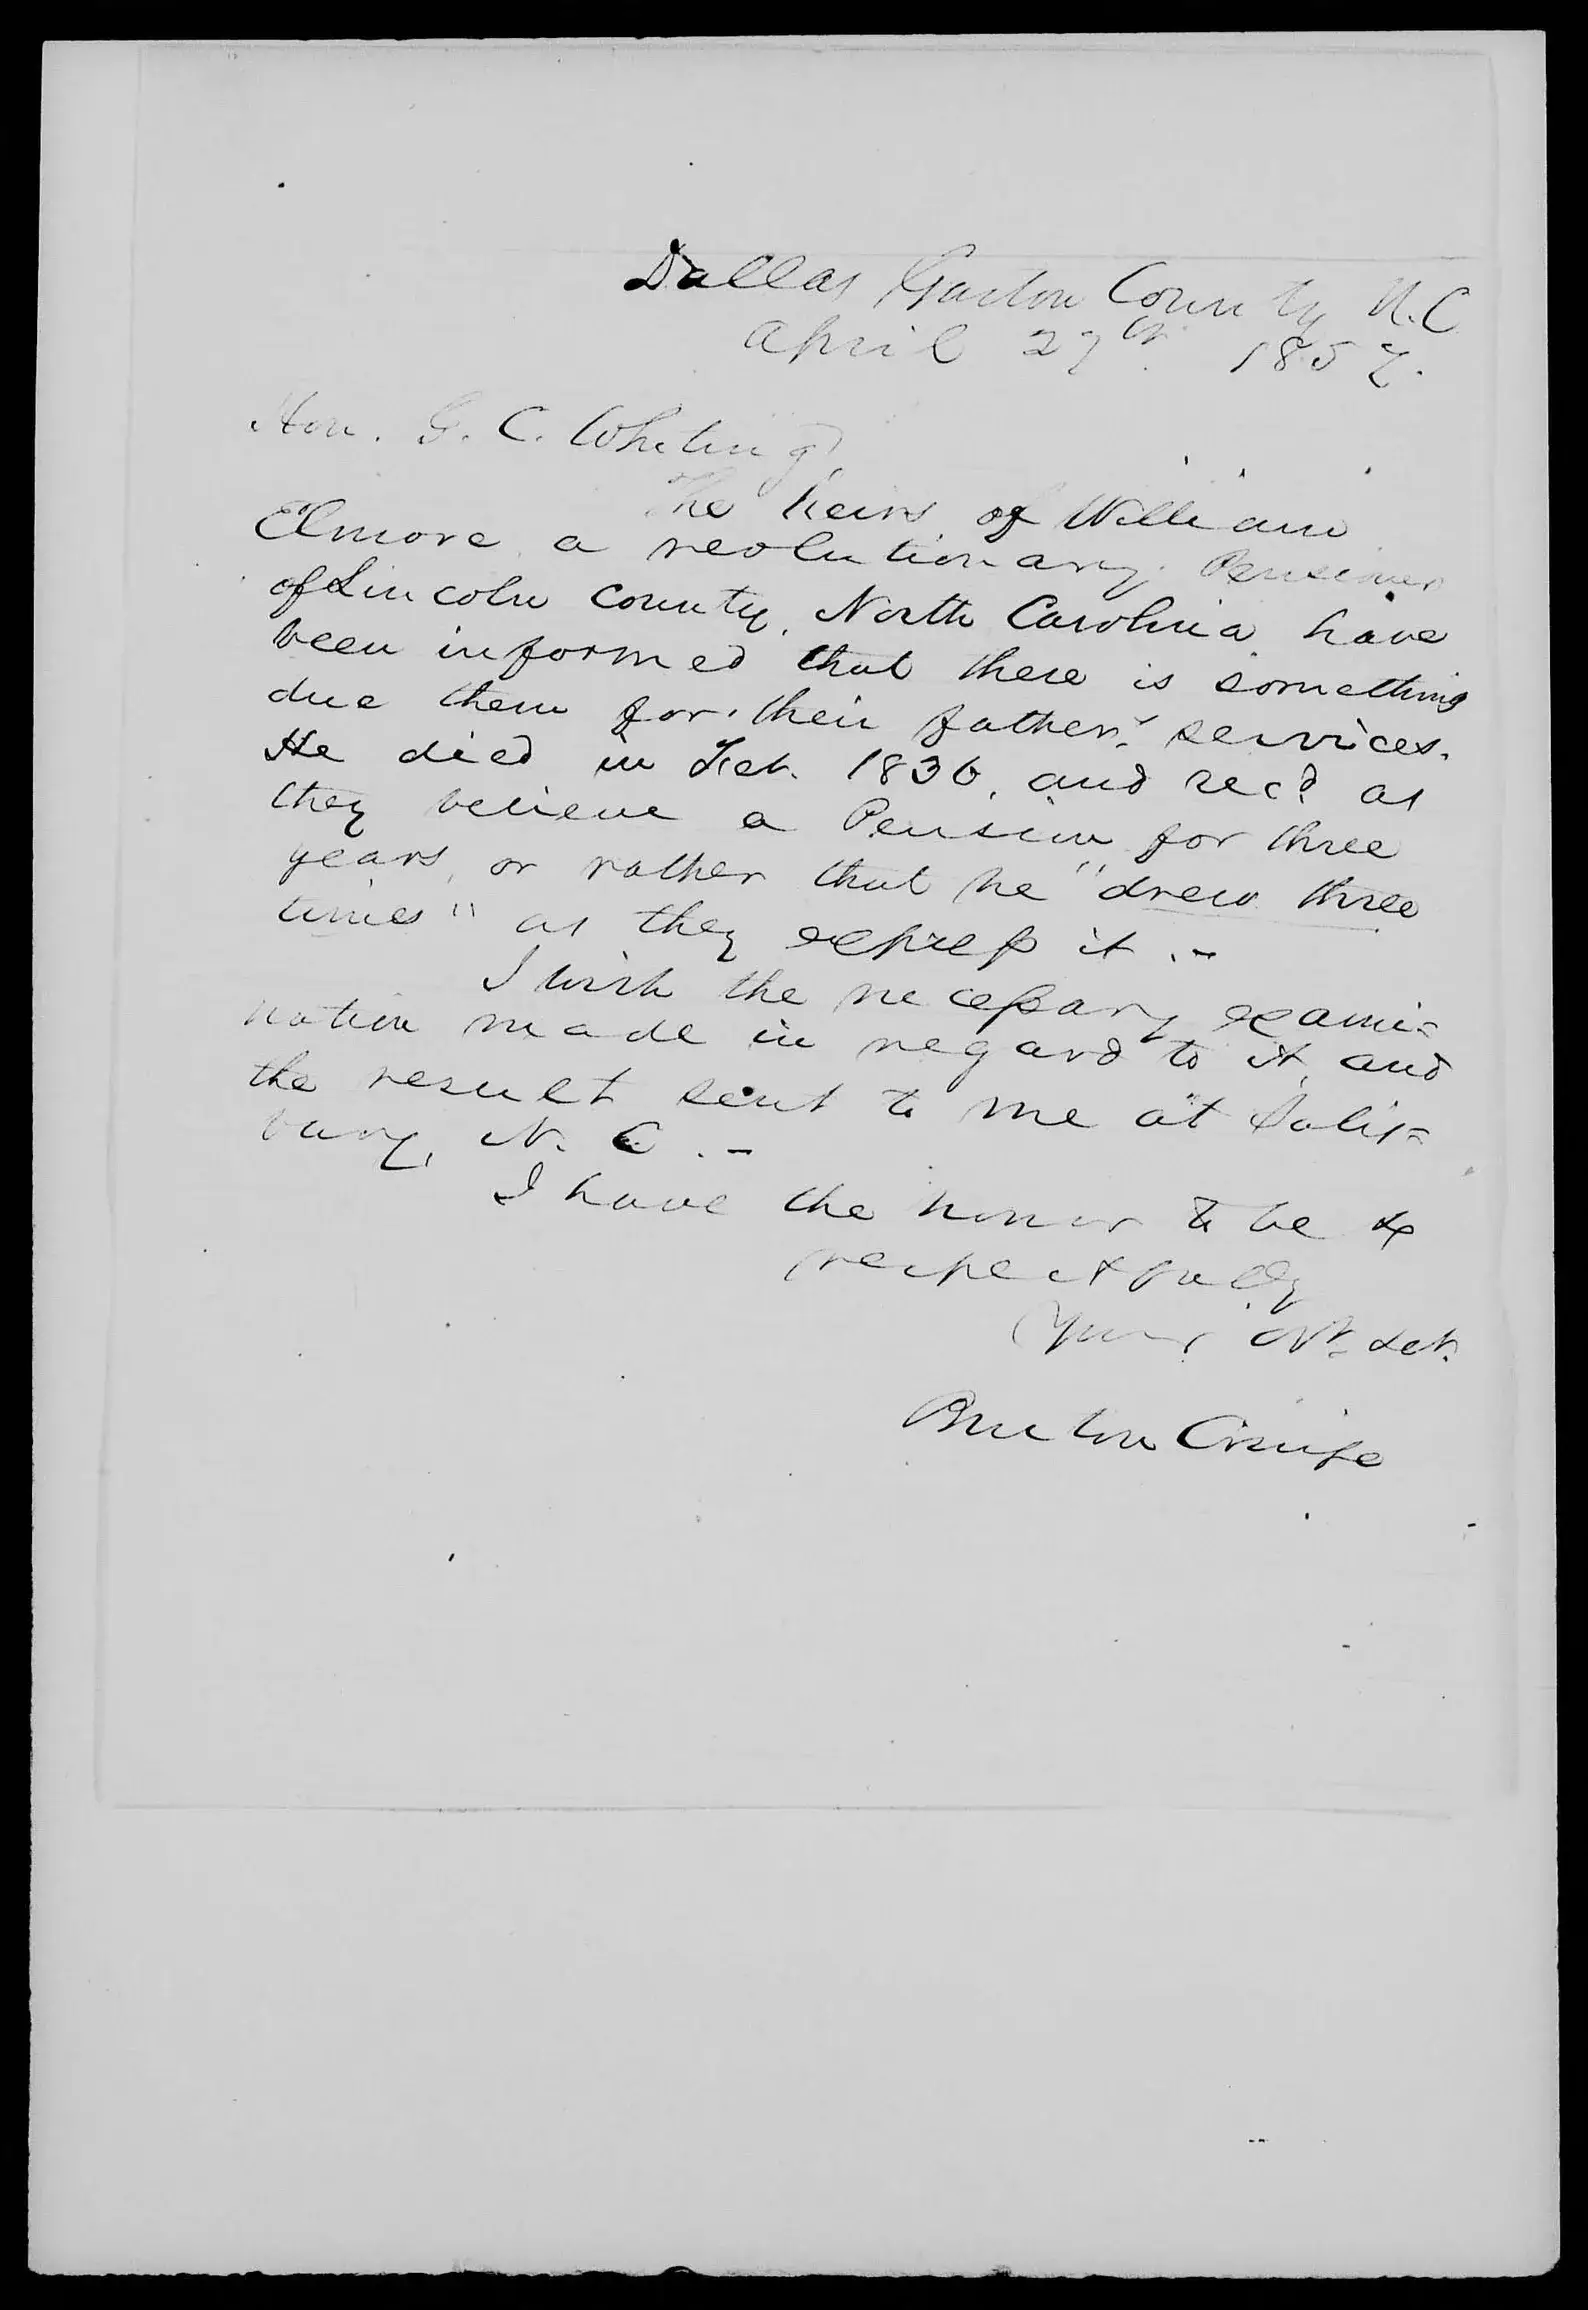 Dallas Gaston County N.C
April 27th 1857.
Hon. G. C. Whiting,
The heirs of William
Elmore a revolutionary Pensioner
of Lincoln County, North Carolina have
been informed that there is something
due them for their father's services.
He died in Feb. 1836, and recd as
they believe a Pension for three
years, or rather that he "drew three
times" as they express it. -
I wish the necessary exami=
nation made in regard to it, and
the result sent to me at Salis=
bury, N. C. -
I have the honor to be &
respectfully
Your Obt. Sevt.
Burton Craige